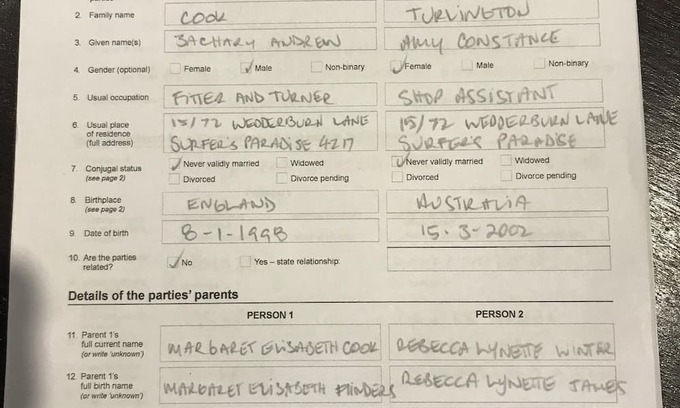 2. Family name COOK TURLINGTON
3. Given name(s) ZACHARY ANDREW AMY CONSTANCE
4. Gender (optional) Female Male Non-binary Female Male Non-binary
5. Usual occupation FITTER AND TURNER SHOP ASSISTANT
6. Usual place of residence (full address) 15/72 WEDDERBURN LANE 15/72 WEDDERBURN LANE
SURFER'S PARADISE 4217 SURFER'S PARADISE
7. Conjugal status Never validly married Widowed Never validly married Widowed
(see page 2) Divorced Divorce pending Divorced Divorce pending
8. Birthplace ENGLAND AUSTRALIA
(see page 2)
9. Date of birth 8-1-1998 15.3-2002
10. Are the parties related? No Yes – state relationship:
Details of the parties' parents
PERSON 1 PERSON 2
11. Parent 1's full current name (or write 'unknown') MARGARET ELISABETH COOK REBECCA LYNETTE WINTER
12. Parent 1's full birth name (or write 'unknown') MARGARET ELISABETH FLINDERS REBECCA LYNETTE JAMES